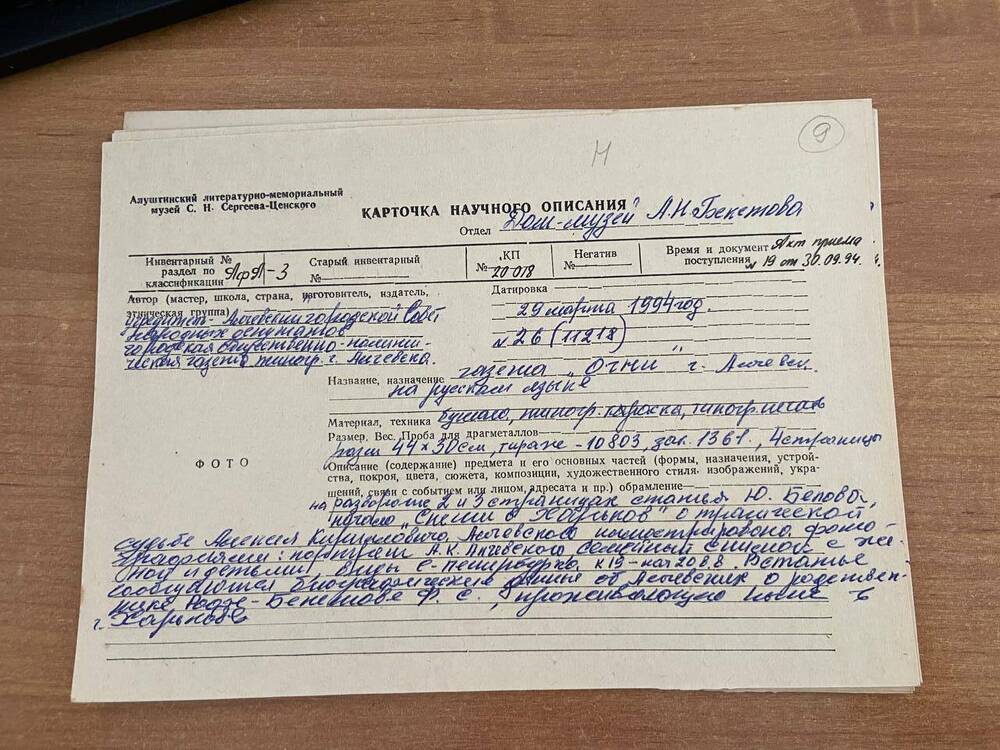 9
Н
Алуштинский литературно-мемориальный
музей С. Н. Сергеева-Ценского
КАРТОЧКА НАУЧНОГО ОПИСАНИЯ
Отдел Дом-музей А.Н. Бекетова
Инвентарный №
раздел по
классификации АфА-3
Старый инвентарный
№
КП
№ 20018
Негатив
№
Время и документ Акт приема
поступления № 19 от 30.09.94 г.
Автор (мастер, школа, страна, изготовитель, издатель,
этническая группа)
учредитель - Алчевский городской Совет
народных депутатов
городская общественно-полити-
ческая газета типогр. г. Алчевска.
Датировка
29 марта 1994 год.
№ 26 (11218)
газета „Огни" г. Алчевск.
Название, назначение
на русском языке
Материал, техника бумага, типогр. краска, типогр. печать
Размер. Вес. Проба для драгметаллов
разм 44×30 см, тираж - 10803, зак. 1361, 4 страницы
ФОТО
Описание (содержание) предмета и его основных частей (формы, назначения, устрой-
ства, покроя, цвета, сюжета, композиции, художественного стиля изображений, укра-
шений, связи с событием или лицом, адресата и пр.) обрамление
на развороте 2 и 3 страницах статья Ю. Белова,
начало „ в Харьков" о трагической
судьбе Алексея Кирилловича Алчевского иллюстрирована фото-
графиями: портрет А.К. Алчевского семейный снимок с же-
ной и детьми виды С-Петербурга к. 19 - нач 20 в.в. В статье
сообщаются биографические данные об Алчевских о родствен-
нике Бекетове Ф. С., проживающю ныне в
г. Харькове